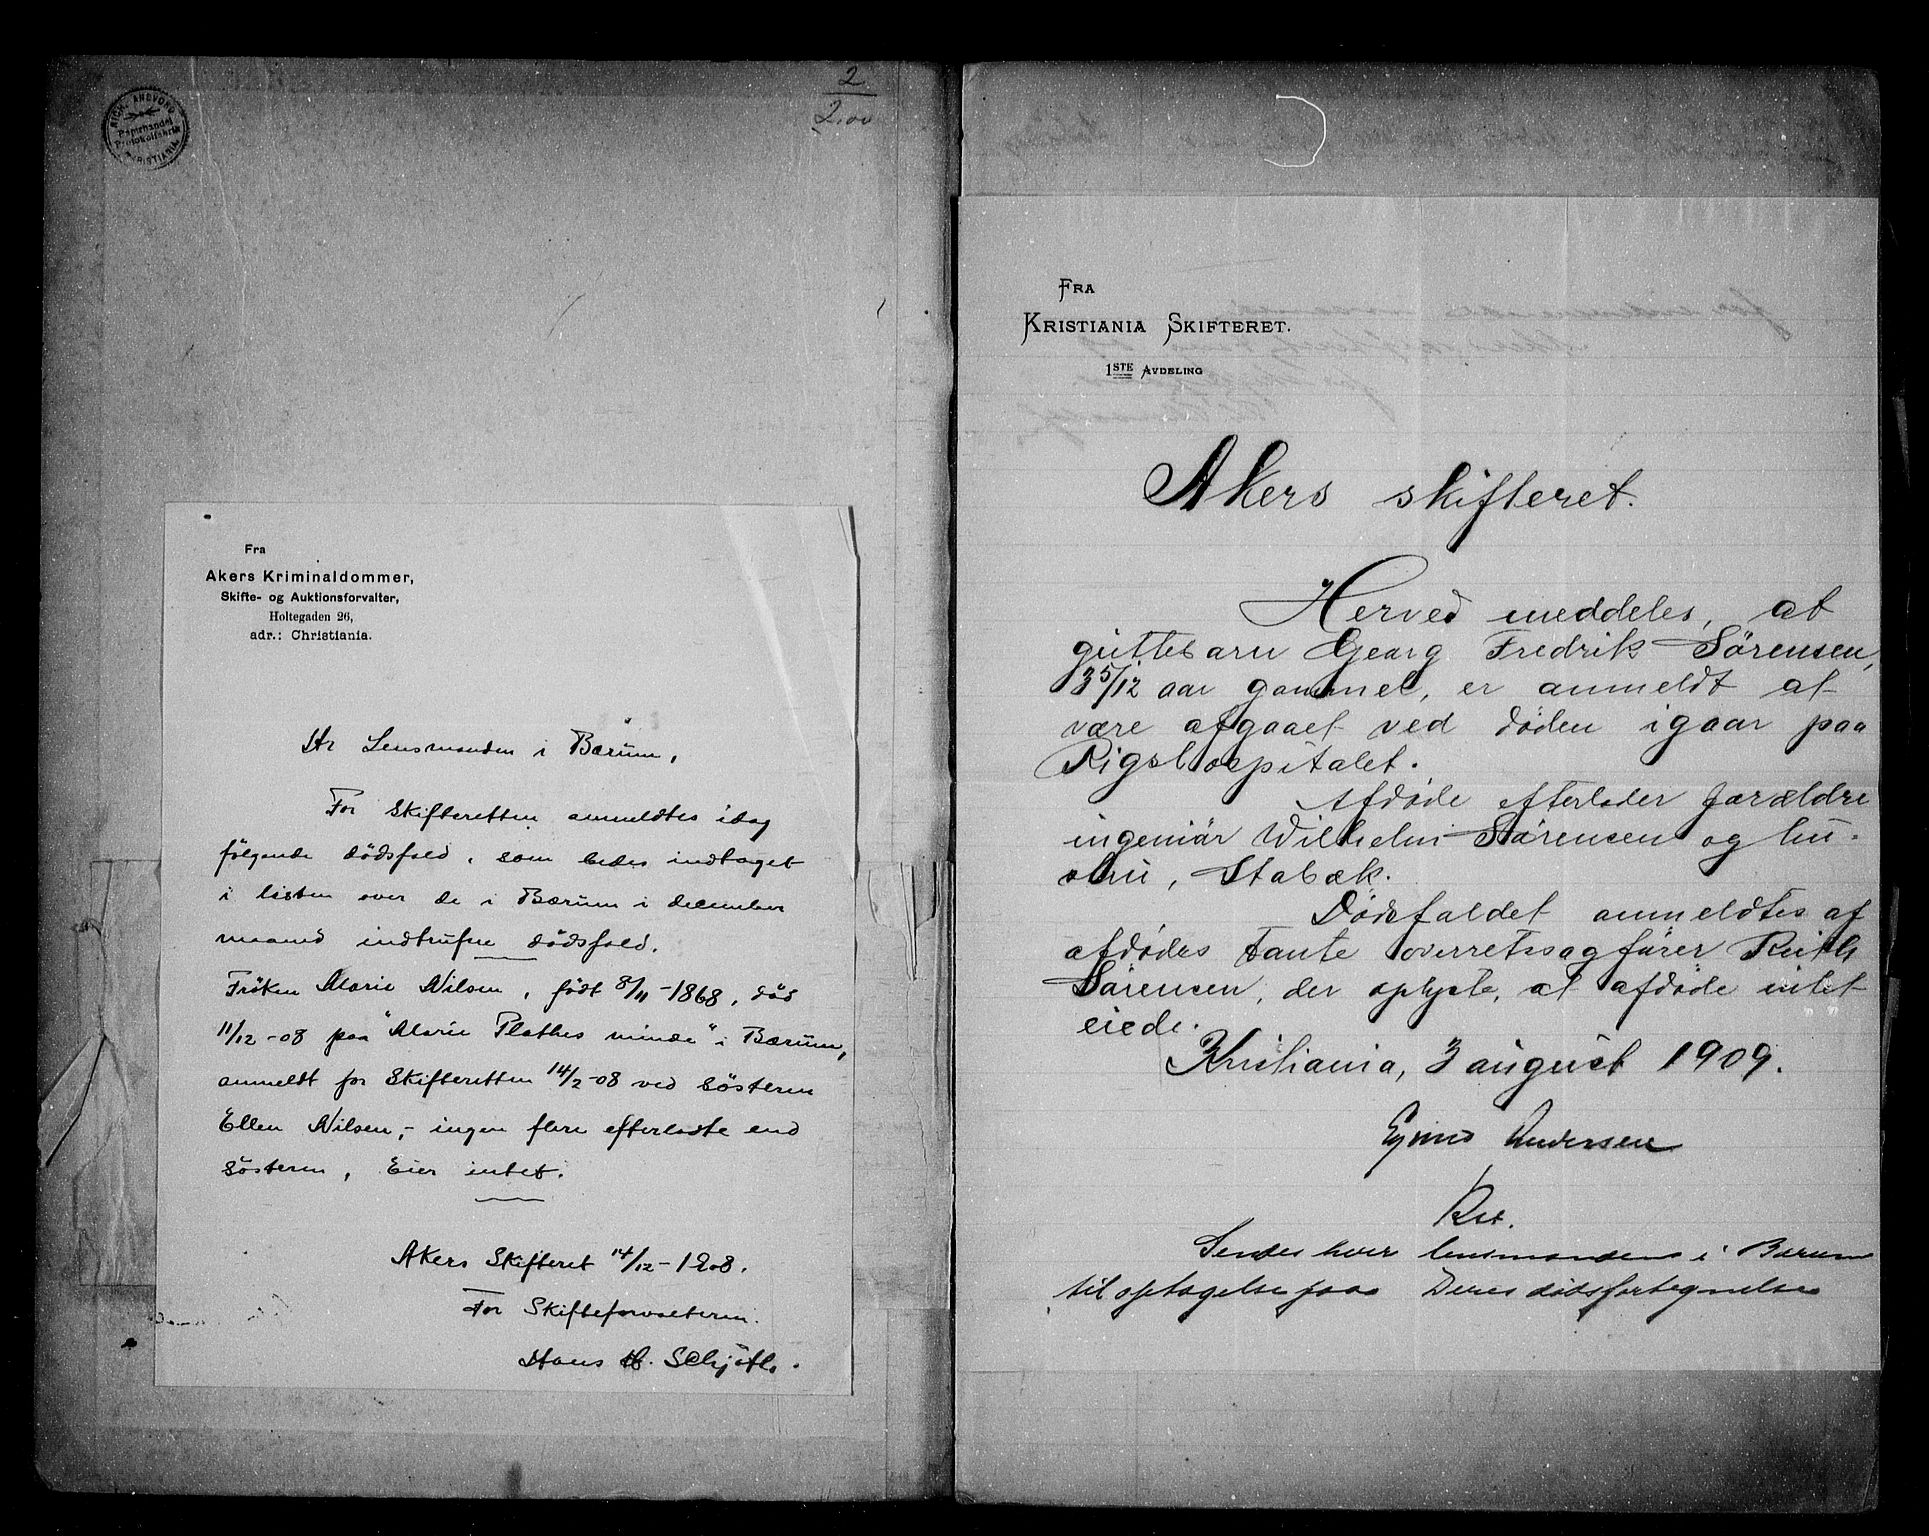 2
2.00
MICH. ANDVORD
Papirhandel
Protokolfabrik
KRISTIANIA
Fra
Akers Kriminaldommer,
Skifte- og Auktionsforvalter,
Holtegaden 26,
adr.: Christiania.
Hr Lensmanden i Bærum,
For Skifteretten anmeldtes idag
følgende dødsfald, som bedes indtaget
i listen over de i Bærum i december
maaned indtrufne dødsfald.
Frøken Marie Nilsen, født 8/11-1868, død
11/12-08 paa "Marie Plathes minde" i Bærum,
anmeldt for Skifteretten 14/2-08 ved søsteren
Ellen Nilsen,- ingen flere efterladte end
søsteren, Eier intet.
Akers Skifteret 14/12-1908.
For Skifteforvalteren.
Hans H. Schjøth.
FRA
KRISTIANIA SKIFTERET.
1STE AVDELING
Akers skifteret.
Herved meddeles, at
guttebarn Georg Fredrik Sørensen,
3 5/12 aar gammel, er anmeldt at
være afgaaet ved døden igaar paa
Rigshospitalet.
Afdøde efterlader forældre
ingeniør Wilhelm Sørensen og hu-
stru, Stabæk.
Dødsfaldet anmeldtes af
afdødes tante overretssagfører Ruth
Sørensen, der oplyste, at afdøde intet
eiede.
Kristiania, 3 august 1909.
Eyvind Andersen
Sendes herr lensmanden i Bærum
til optagelse paa Deres dødsfortegnelse